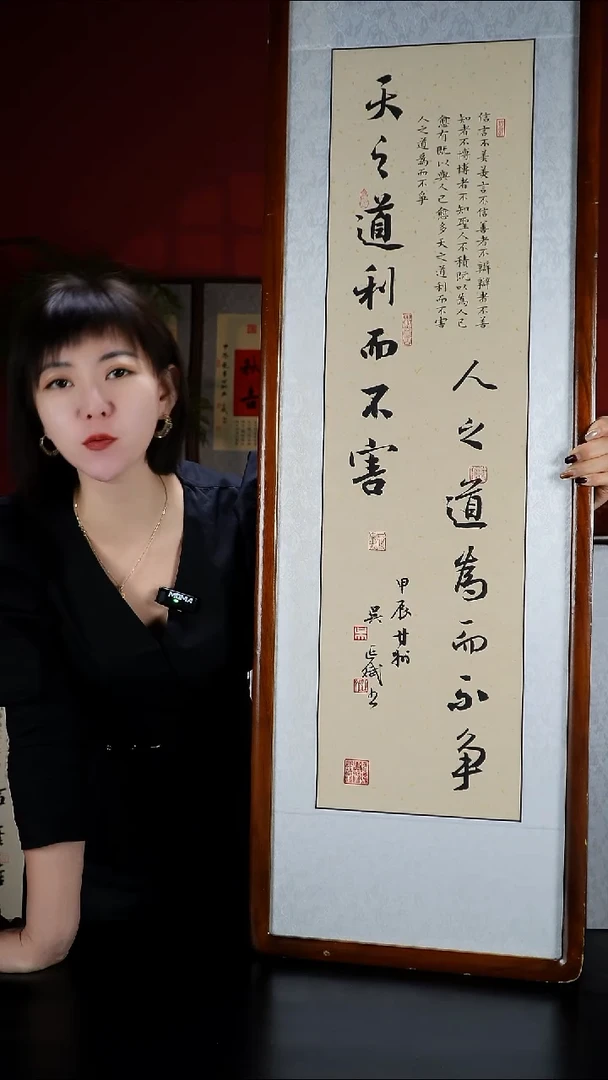 信言不美美言不信善者不辯辯者不善
知者不博博者不知聖人不積既以為人己
愈有既以與人己愈多天之道利而不害
人之道為而不争
人之道為而不争
天之道利而不害
甲辰甘州
吴
MOMA